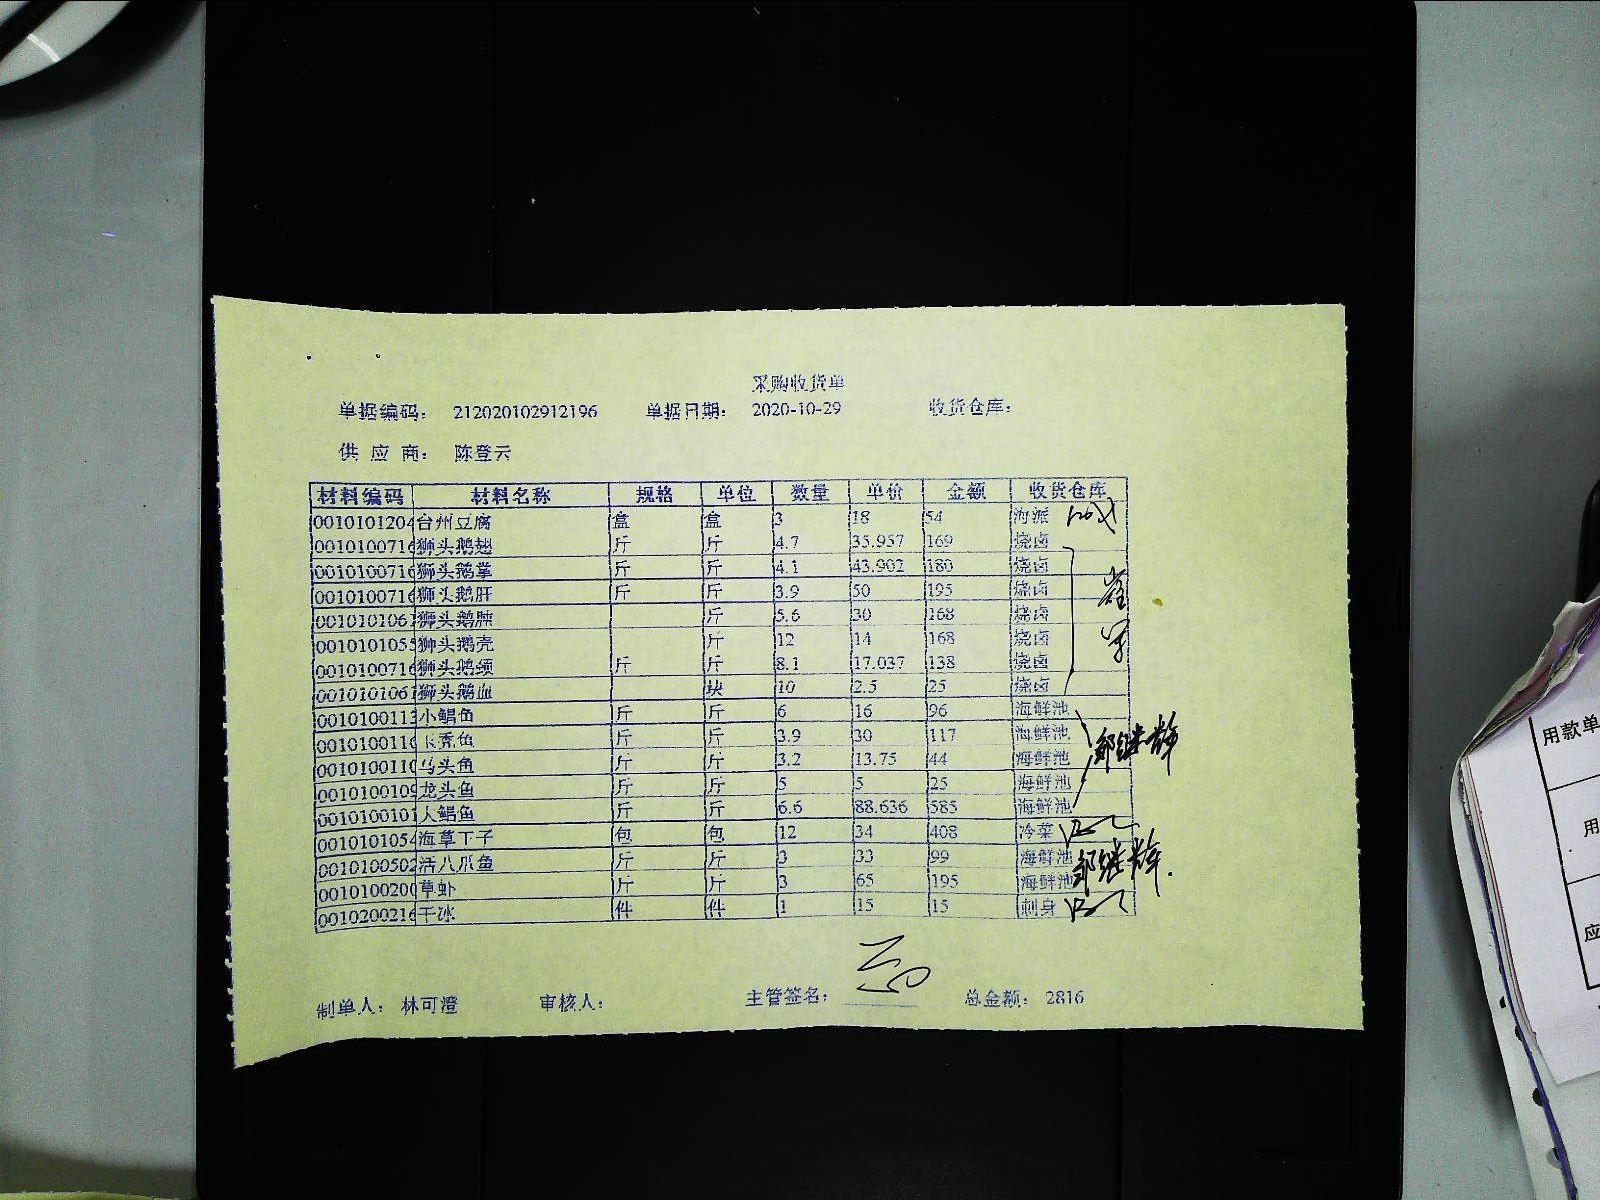 采购收货单
单据编码： 212020102912196 单据日期： 2020-10-29 收货仓库：
供 应 商： 陈登云
材料编码 材料名称 规格 单位 数量 单价 金额 收货仓库
0010101204 台州豆腐 盒 盒 3 18 54 海派
0010100716 狮头鹅翅 斤 斤 4.7 35.957 169 烧卤
0010100716 狮头鹅掌 斤 斤 4.1 43.902 180 烧卤
0010100716 狮头鹅肝 斤 斤 3.9 50 195 烧卤
0010101061 狮头鹅 斤 5.6 30 168 烧卤
0010101055 狮头鹅壳 斤 12 14 168 烧卤
0010100716 狮头鹅颈 斤 斤 8.1 17.037 138 烧卤
0010101061 狮头鹅血 块 10 2.5 25 烧卤
0010100113 小鲳鱼 斤 斤 6 16 96 海鲜池
0010100116 秃鱼 斤 斤 3.9 30 117 海鲜池
0010100110 马头鱼 斤 斤 3.2 13.75 44 海鲜池
0010100109 龙头鱼 斤 斤 5 5 25 海鲜池
0010100101 大鲳鱼 斤 斤 6.6 88.636 585 海鲜池
邹继辉
0010101054 海草丁子 包 包 12 34 408 冷菜
0010100502 活八爪鱼 斤 斤 3 33 99 海鲜池
0010100200 草虾 斤 斤 3 65 195 海鲜池
邹继辉
0010200216 干冰 件 件 1 15 15 刺身
制单人： 林可澄 审核人： 主管签名： 总金额： 2816
用款单
用
应